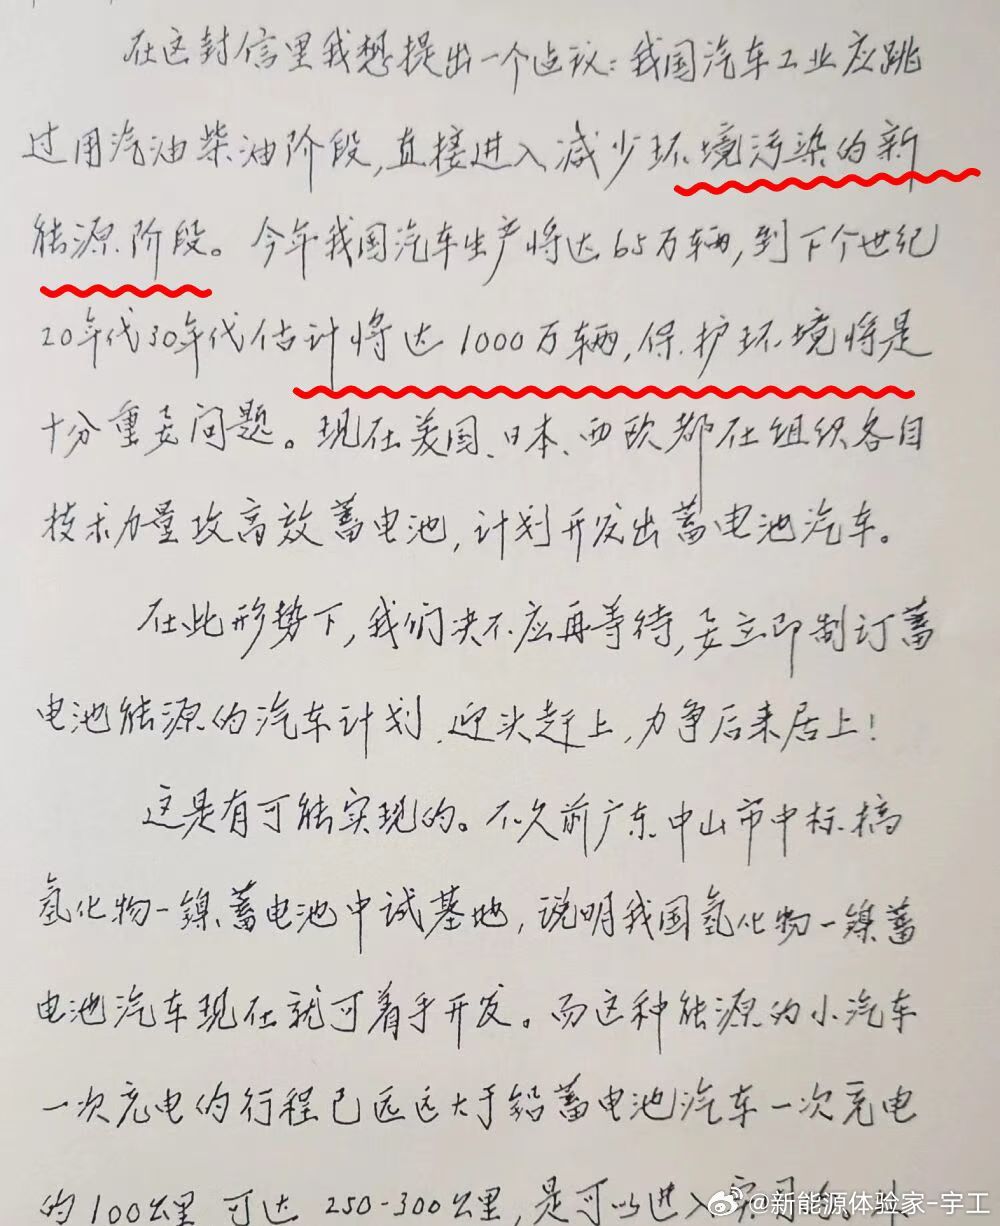 在这封信里我想提出一个建议：我国汽车工业应跳
过用汽油柴油阶段，直接进入减少环境污染的新
能源阶段。今年我国汽车生产将达65万辆，到下个世纪
20年代30年代估计将达1000万辆，保护环境将是
十分重要问题。现在美国、日本、西欧都在组织各自
技术力量攻高效蓄电池，计划开发出蓄电池汽车。
在此形势下，我们决不应再等待，要立即制订蓄
电池能源的汽车计划，迎头赶上，力争后来居上！
这是有可能实现的。不久前广东中山市中标搞
氢化物一镍蓄电池中试基地，说明我国氢化物一镍蓄
电池汽车现在就可着手开发。而这种能源的小汽车
一次充电的行程已远远大于铅蓄电池汽车一次充电
的100公里 可达 250-300公里，是可以进入实用的
@新能源体验家-宇工